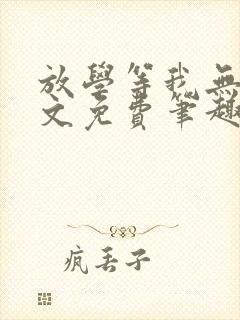 放學等我無
文免費筆趣
瘋丟子